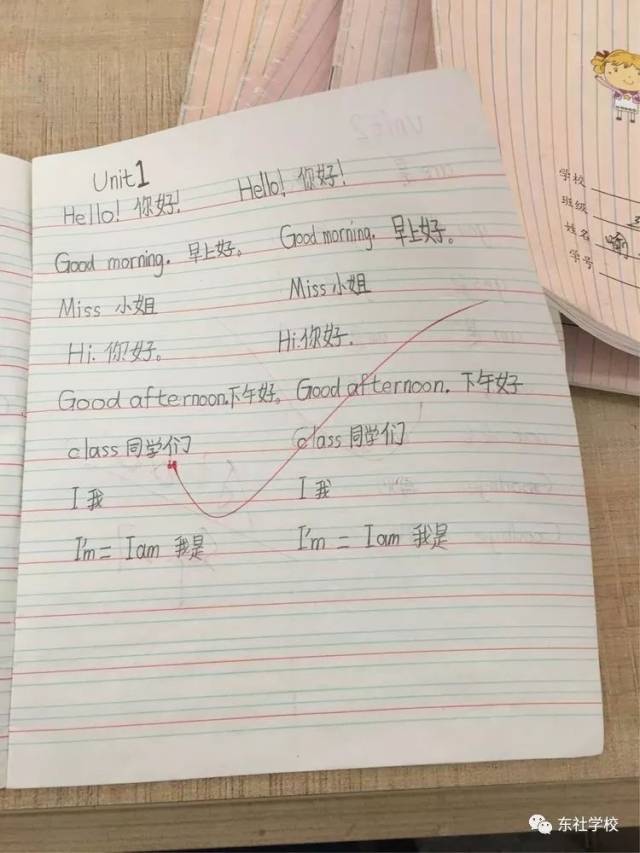 Unit1
Hello! 你好! Hello! 你好!
Good morning. 早上好。 Good morning. 早上好。
Miss 小姐 Miss 小姐
Hi. 你好。 Hi. 你好.
Good afternoon. 下午好。 Good afternoon. 下午好
class 同学们 class 同学们
I 我 I 我
I'm = I am 我是 I'm = I am 我是
学校
班级
姓名
学号
东社学校